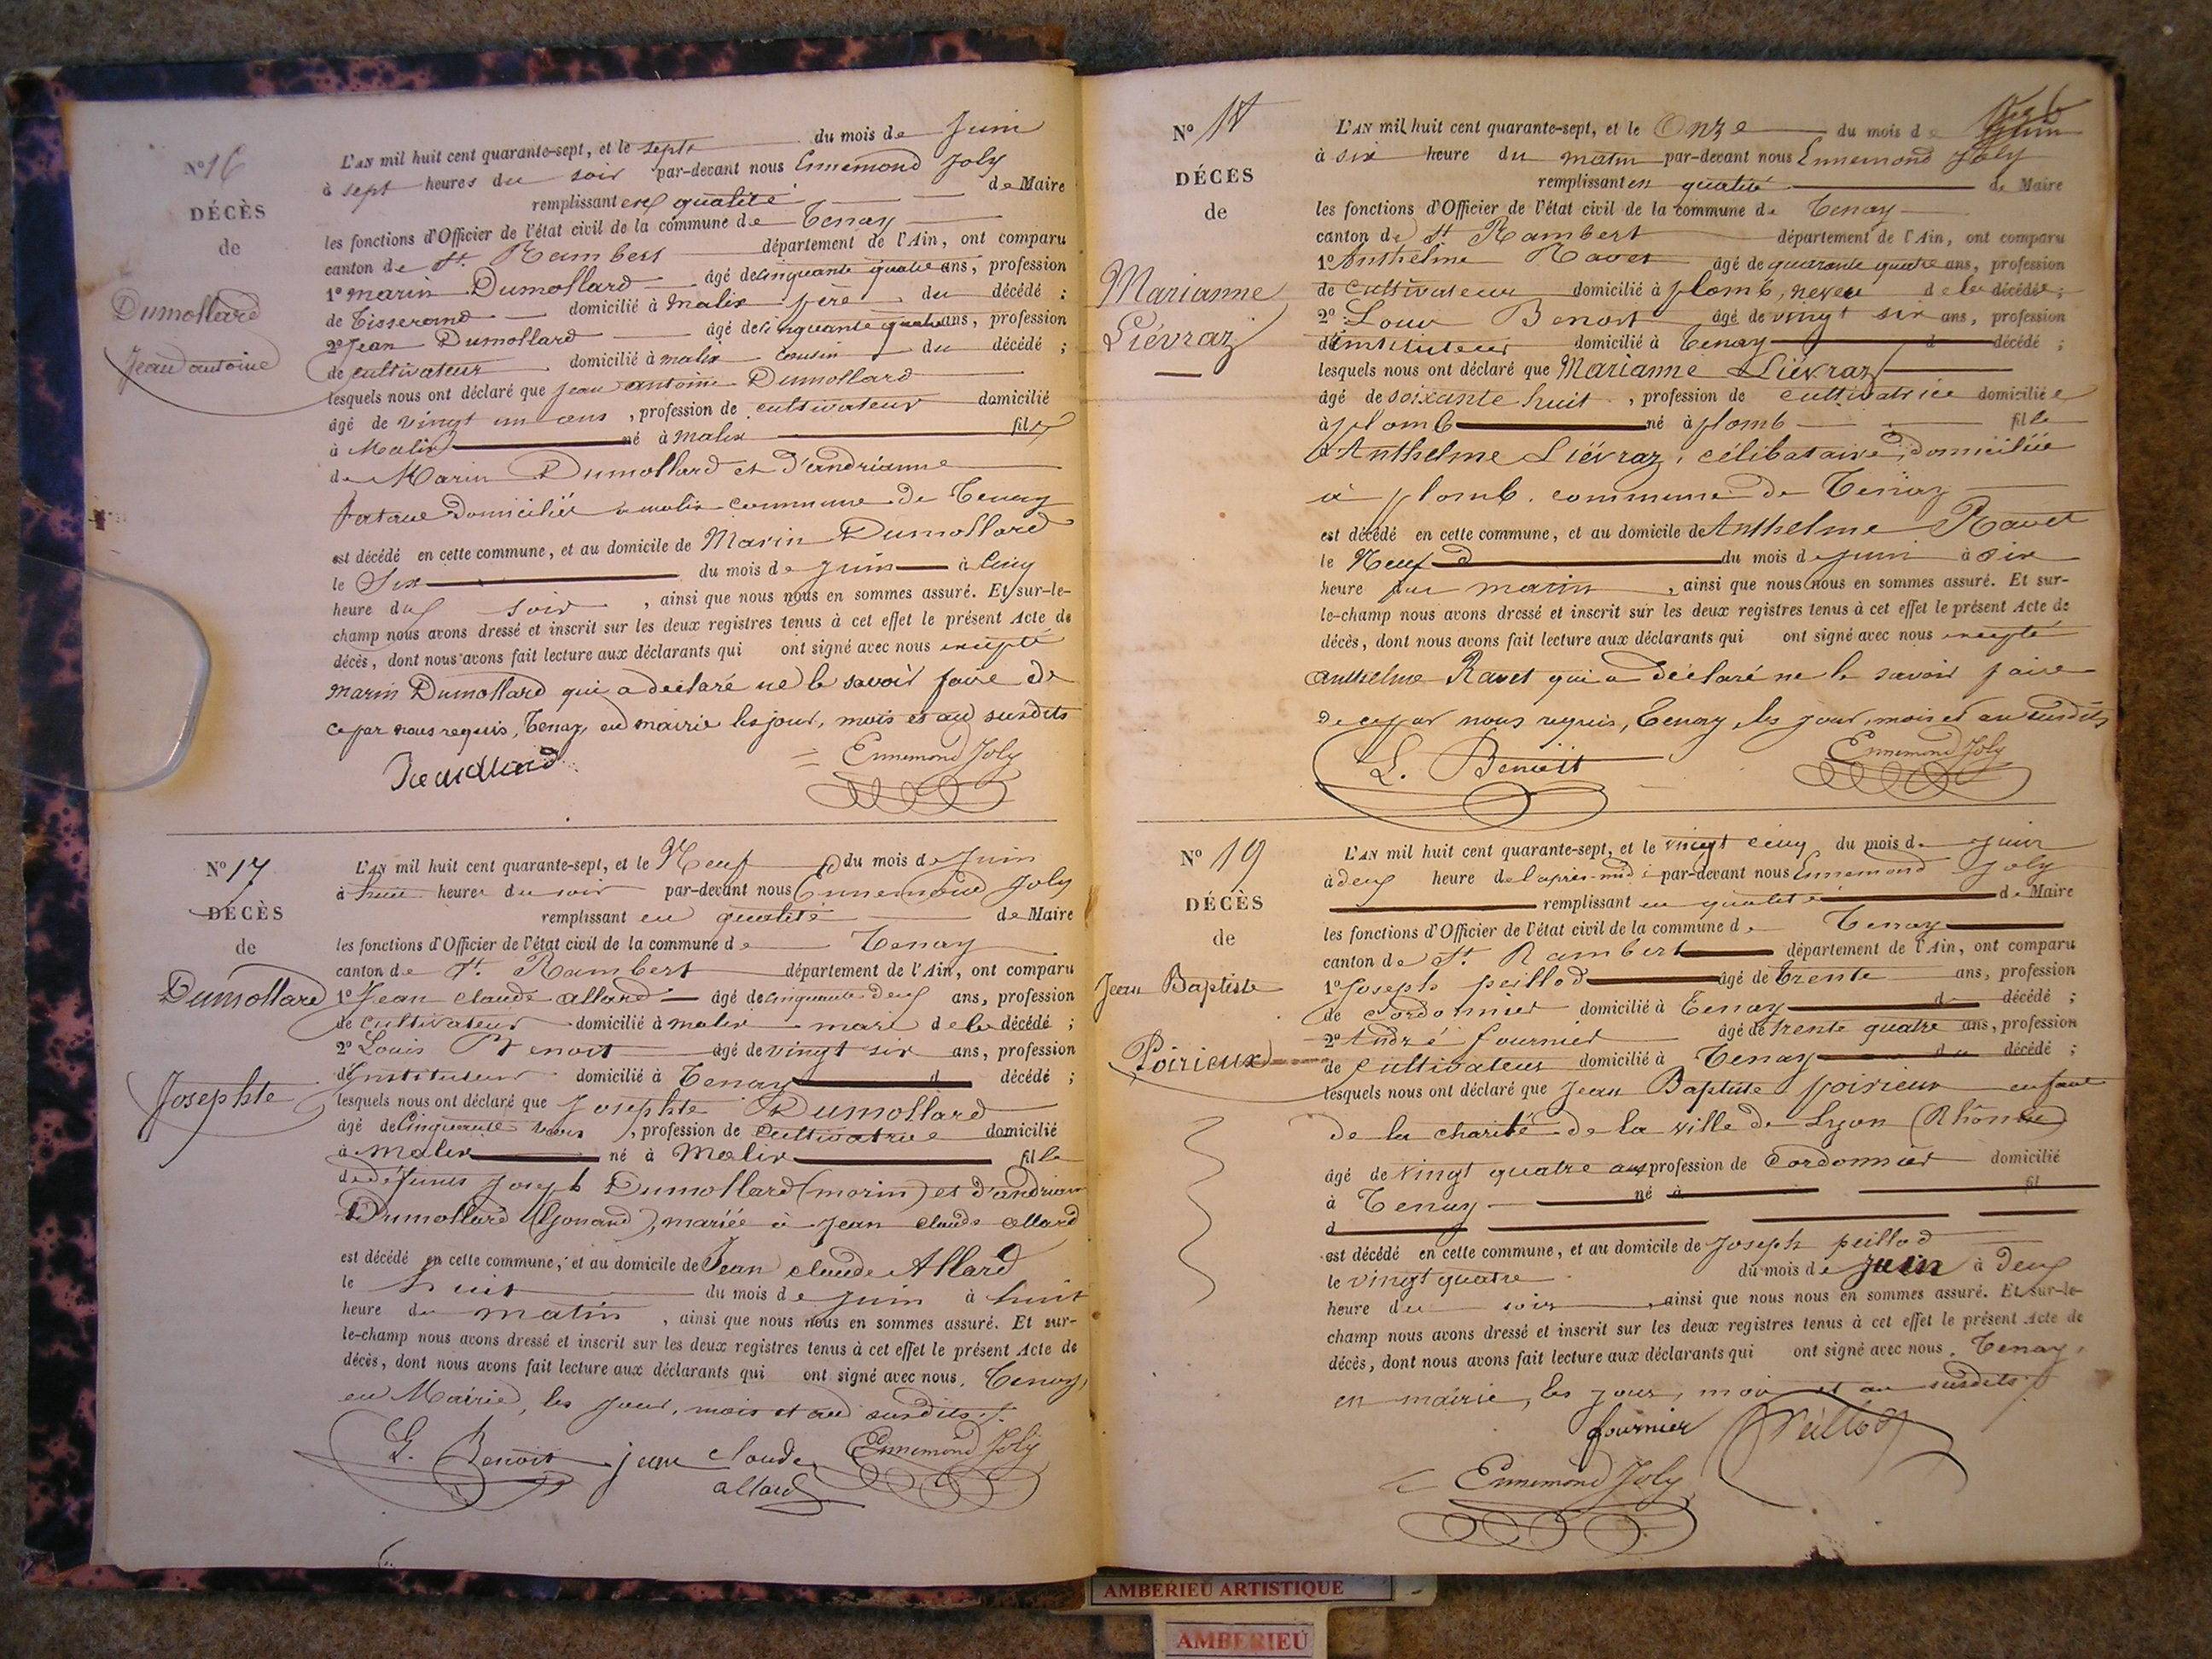 N° 16
DÉCÈS
de
Dumollard
Jean antoine
L'AN mil huit cent quarante-sept, et le sept du mois de Juin
à sept heures du soir par-devant nous Ennemond Joly
remplissant en qualité de Maire
les fonctions d'Officier de l'état civil de la commune de Tenay
canton de St. Rambert département de l'Ain, ont comparu
1° marin Dumollard âgé de cinquante quatre ans, profession
de Tisserand domicilié à Malix père du décédé ;
2° Jean Dumollard âgé de cinquante quatre ans, profession
de cultivateur domicilié à malix cousin du décédé ;
lesquels nous ont déclaré que jean antoine Dumollard
âgé de vingt un ans , profession de cultivateur domicilié
à Malix né à malix fils
de Marin Dumollard et d'andrianne
domiciliés à malix commune de Tenay
est décédé en cette commune, et au domicile de Marin Dumollard
le Six du mois de juin à Cinq
heure du soir , ainsi que nous nous en sommes assuré. Et sur-le-
champ nous avons dressé et inscrit sur les deux registres tenus à cet effet le présent Acte de
décès, dont nous avons fait lecture aux déclarants qui ont signé avec nous excepté
marin Dumollard qui a déclaré ne le savoir faire de
ce par nous requis, Tenay, en mairie les jour, mois et an susdits
Ennemond Joly
N° 17
DÉCÈS
de
Dumollard
Josephte
L'AN mil huit cent quarante-sept, et le Neuf du mois de Juin
à huit heures du soir par-devant nous Ennemond Joly
remplissant en qualité de Maire
les fonctions d'Officier de l'état civil de la commune de Tenay
canton de St. Rambert département de l'Ain, ont comparu
1° Jean claude allard âgé de cinquante deux ans, profession
de cultivateur domicilié à malix mari de la décédé ;
2° Louis Benoit âgé de vingt six ans, profession
d'Instituteur domicilié à Tenay d décédé ;
lesquels nous ont déclaré que Josephte Dumollard
âgé de Cinquante , profession de cultivatrice domicilié
à malix né à Malix fille
de défunts Joseph Dumollard (marin) et d'andrianne
Dumollard (Gonand), mariée à jean claude allard
est décédé en cette commune, et au domicile de Jean claude Allard
le huit du mois de juin à huit
heure du matin , ainsi que nous nous en sommes assuré. Et sur-
le-champ nous avons dressé et inscrit sur les deux registres tenus à cet effet le présent Acte de
décès, dont nous avons fait lecture aux déclarants qui ont signé avec nous, Tenay,
en Mairie, les jour, mois et an susdits.
L. Benoit jean claude Ennemond Joly
allard
N° 18
DÉCÈS
de
Marianne
Liévraz
L'AN mil huit cent quarante-sept, et le Onze du mois de Juin
à six heure du matin par-devant nous Ennemond Joly
remplissant en qualité de Maire
les fonctions d'Officier de l'état civil de la commune de Tenay
canton de St Rambert département de l'Ain, ont comparu
1° Anthelme Ravet âgé de quarante quatre ans, profession
de cultivateur domicilié à plomb, neveu de la décédée ;
2° Louis Benoit âgé de vingt six ans, profession
d'instituteur domicilié à Tenay d décédé ;
lesquels nous ont déclaré que Marianne Liévraz
âgé de soixante huit , profession de cultivatrice domiciliée
à plomb né à plomb fille
d'Anthelme Liévraz, célibataire, domiciliée
à plomb commune de Tenay
est décédé en cette commune, et au domicile de Anthelme Ravet
le Neuf du mois de juin à Six
heure du matin , ainsi que nous nous en sommes assuré. Et sur-
le-champ nous avons dressé et inscrit sur les deux registres tenus à cet effet le présent Acte de
décès, dont nous avons fait lecture aux déclarants qui ont signé avec nous excepté
anthelme Ravet qui a déclaré ne le savoir faire
de ce par nous requis, Tenay, les jour, mois et an susdits
L. Benoit Ennemond Joly
N° 19
DÉCÈS
de
Jean Baptiste
Poirieux
L'AN mil huit cent quarante-sept, et le vingt cinq du mois de Juin
à deux heure de l'après-midi par-devant nous Ennemond Joly
remplissant en qualité de Maire
les fonctions d'Officier de l'état civil de la commune de Tenay
canton de St. Rambert département de l'Ain, ont comparu
1° Joseph peillod âgé de trente ans, profession
de Cordonnier domicilié à Tenay d décédé ;
2° André fournier âgé de trente quatre ans, profession
de cultivateur domicilié à Tenay du décédé ;
lesquels nous ont déclaré que Jean Baptiste poirieux enfant
de la charité de la ville de Lyon (Rhône)
âgé de vingt quatre ans profession de Cordonnier domicilié
à Tenay né à fil
d
est décédé en cette commune, et au domicile de Joseph peillod
le vingt quatre du mois de juin à deux
heure du soir , ainsi que nous nous en sommes assuré. Et sur-le-
champ nous avons dressé et inscrit sur les deux registres tenus à cet effet le présent Acte de
décès, dont nous avons fait lecture aux déclarants qui ont signé avec nous, Tenay,
en mairie, les jour, mois et an susdits.
fournier Peillod
Ennemond Joly
AMBERIEU ARTISTIQUE
AMBERIEU